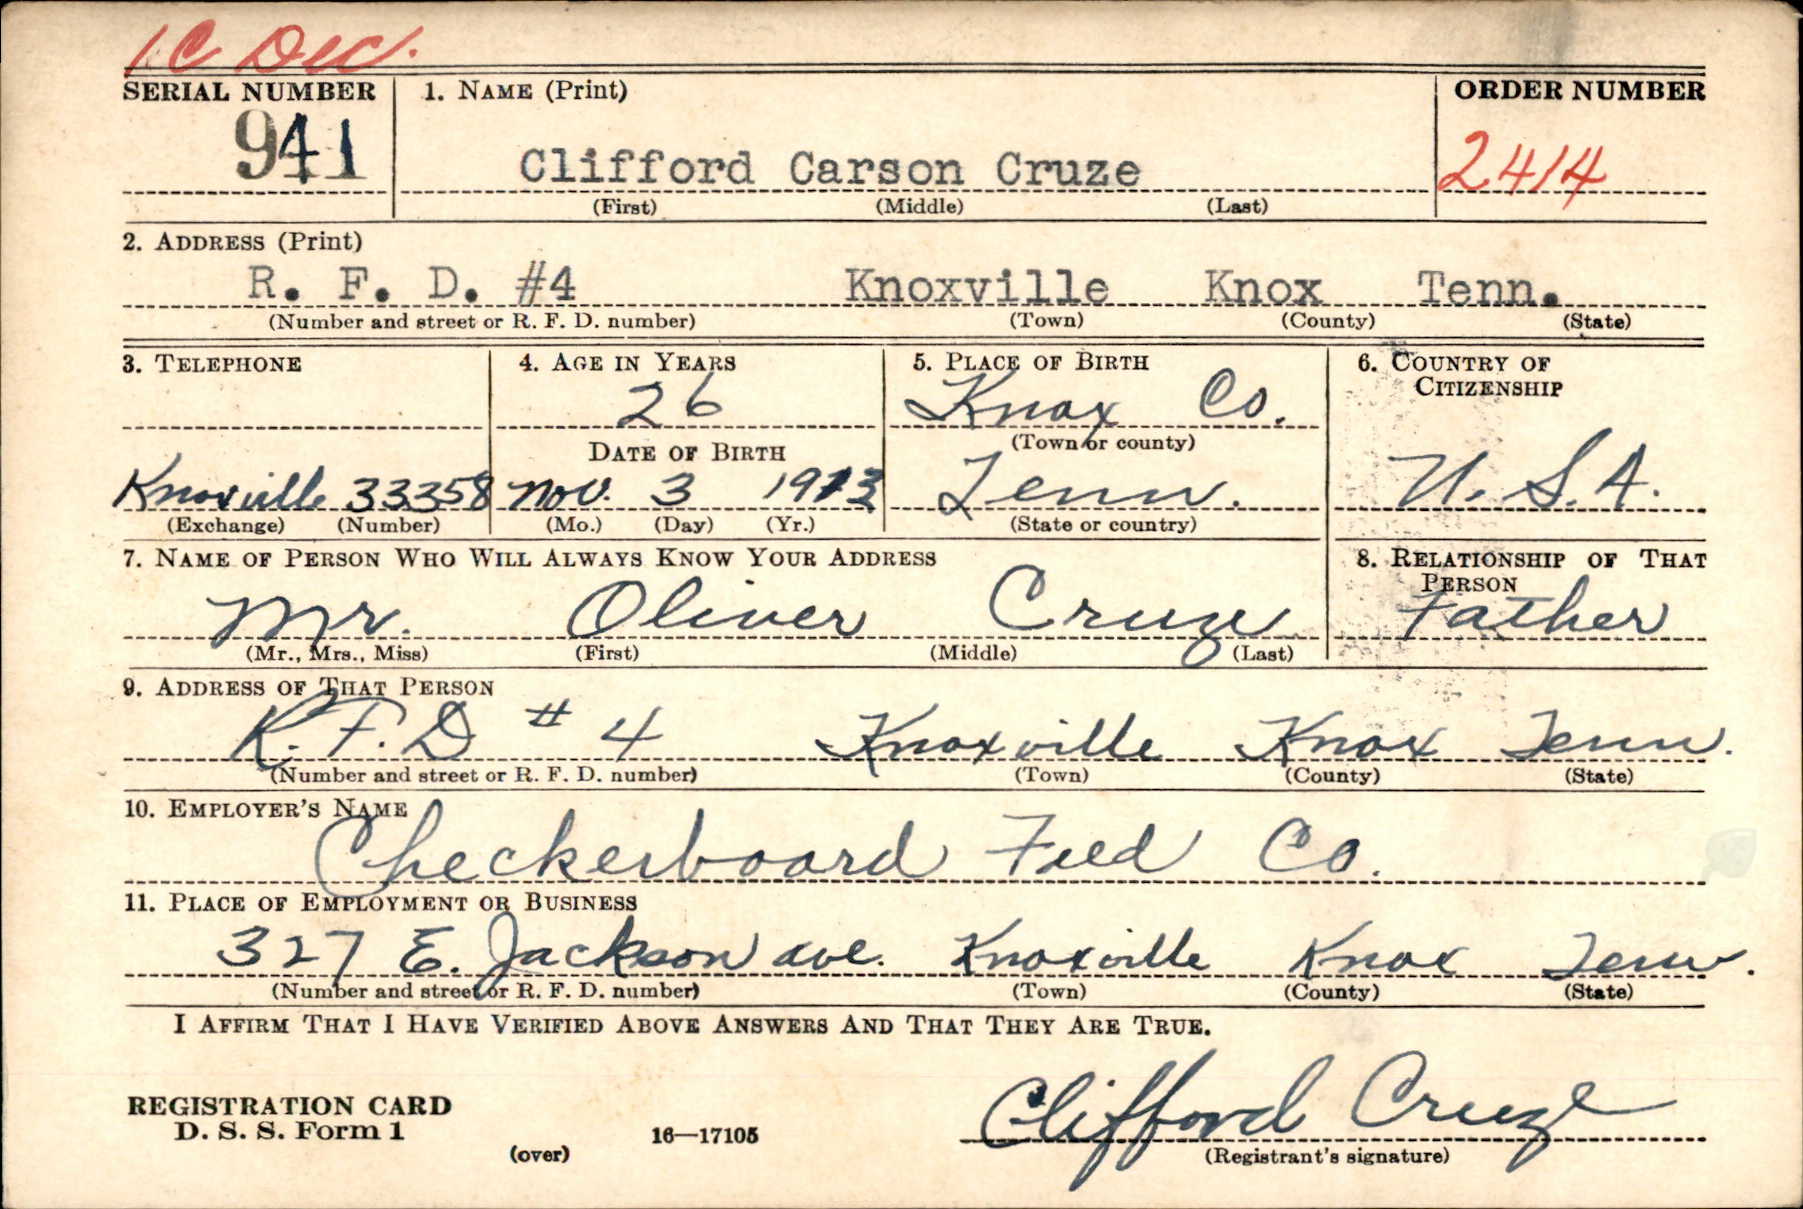 1C Dec.
SERIAL NUMBER 1. NAME (Print) ORDER NUMBER
941 Clifford Carson Cruze 2414
(First) (Middle) (Last)
2. ADDRESS (Print)
R. F. D. #4 Knoxville Knox Tenn.
(Number and street or R. F. D. number) (Town) (County) (State)
3. TELEPHONE 4. AGE IN YEARS 5. PLACE OF BIRTH 6. COUNTRY OF CITIZENSHIP
26 Knox Co.
DATE OF BIRTH (Town or county)
Knoxville 33358 Nov. 3 1913 Tenn. U.S.A.
(Exchange) (Number) (Mo.) (Day) (Yr.) (State or country)
7. NAME OF PERSON WHO WILL ALWAYS KNOW YOUR ADDRESS 8. RELATIONSHIP OF THAT PERSON
Mr. Oliver Cruze Father
(Mr., Mrs., Miss) (First) (Middle) (Last)
9. ADDRESS OF THAT PERSON
R.F.D # 4 Knoxville Knox Tenn.
(Number and street or R. F. D. number) (Town) (County) (State)
10. EMPLOYER'S NAME
Checkerboard Feed Co.
11. PLACE OF EMPLOYMENT OR BUSINESS
327 E. Jackson ave. Knoxville Knox Tenn.
(Number and street or R. F. D. number) (Town) (County) (State)
I AFFIRM THAT I HAVE VERIFIED ABOVE ANSWERS AND THAT THEY ARE TRUE.
REGISTRATION CARD
D. S. S. Form 1 16—17105 Clifford Cruze
(over) (Registrant's signature)